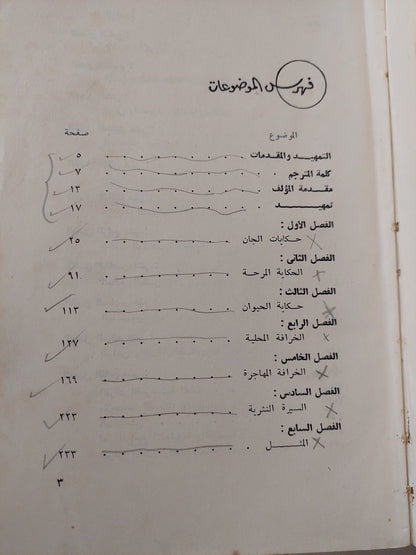 فهرس الموضوعات
الموضوع صفحة
التمهيد والمقدمات ٥
كلمة المترجم ٧
مقدمة المؤلف ١٣
تمهيد ١٧
الفصل الأول :
حكايات الجان ٢٥
الفصل الثانى :
الحكاية المرحة ٩١
الفصل الثالث :
حكاية الحيوان ١١٣
الفصل الرابع :
الخرافة المحلية ١٢٧
الفصل الخامس :
الخرافة المهاجرة ١٦٩
الفصل السادس :
السيرة النثرية ٢٢٣
الفصل السابع :
المثل ٢٣٣
٣